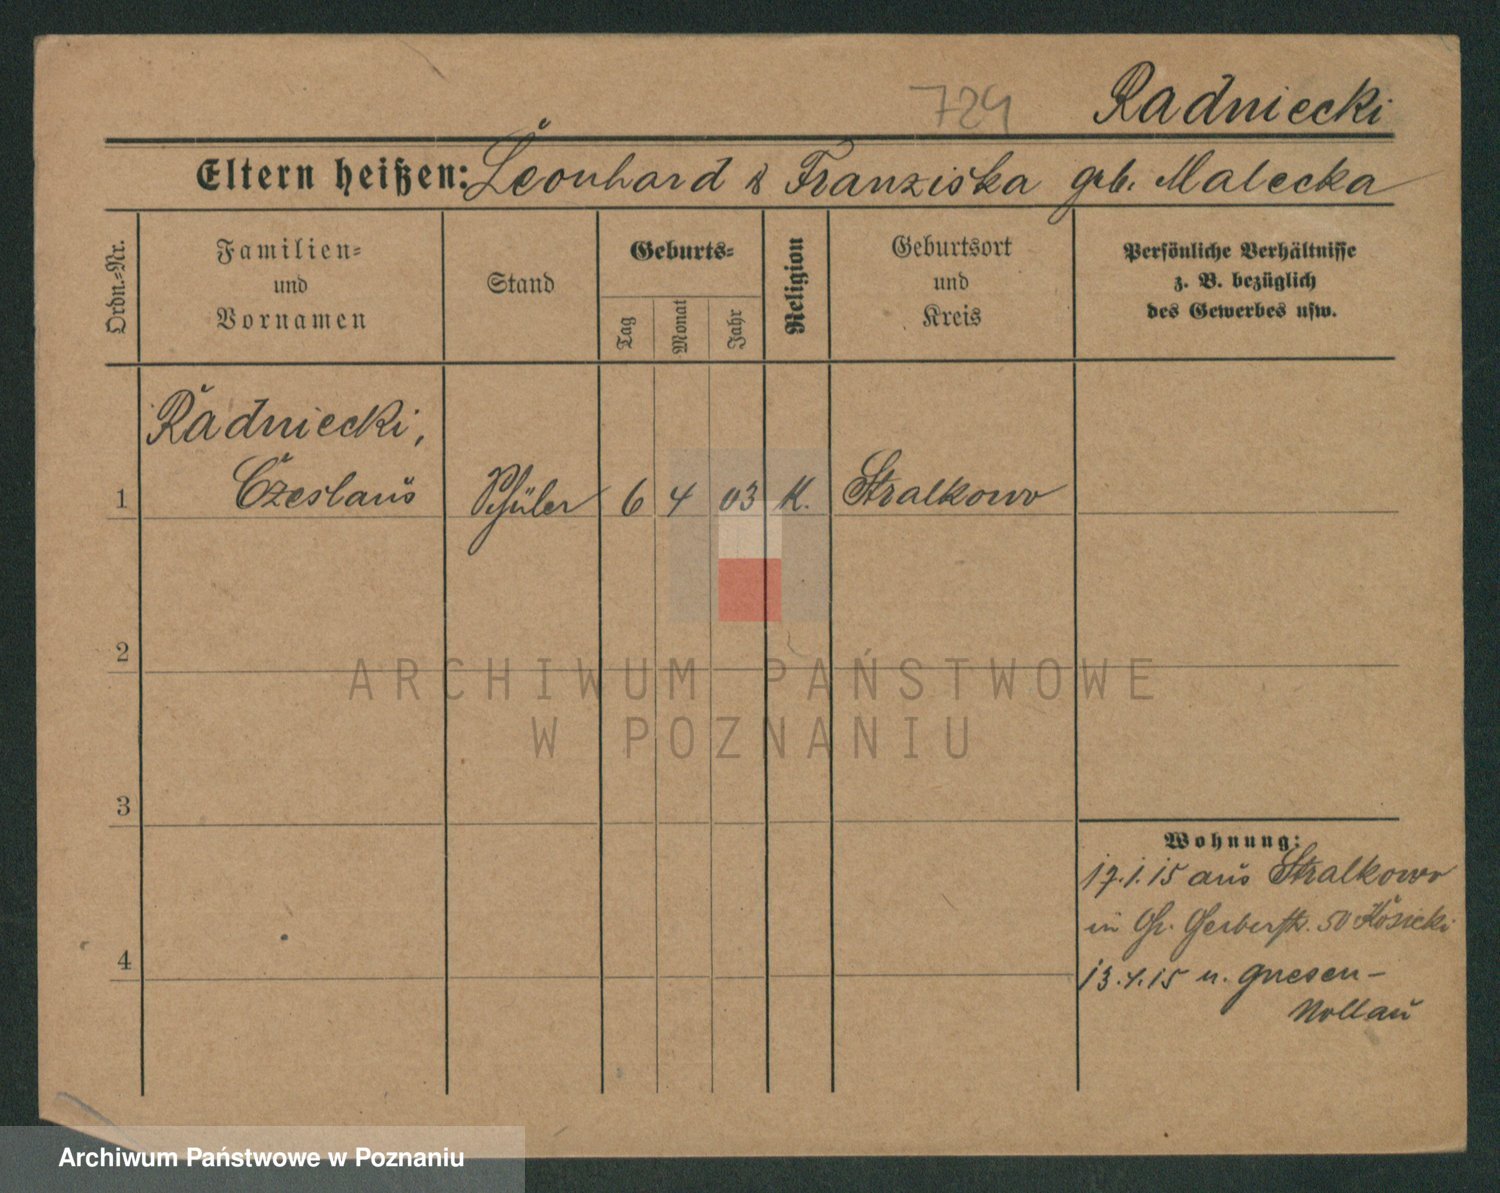 729 Radniecki
Eltern heißen: Leonhard & Franziska geb. Malecka
Ordn.=Nr.
Familien=
und
Vornamen
Stand
Geburts=
Tag
Monat
Jahr
Religion
Geburtsort
und
Kreis
Persönliche Verhältnisse
z. B. bezüglich
des Gewerbes usw.
Radniecki,
1 Czeslaus Schüler 6 4 03 K. Stralkowo
2
ARCHIWUM PAŃSTWOWE
W POZNANIU
3
Wohnung:
17.1.15 aus Stralkowo
in Gr. Gerberstr. 50 Kosicki
4
13.4.15 n. Gnesen-
Archiwum Państwowe w Poznaniu